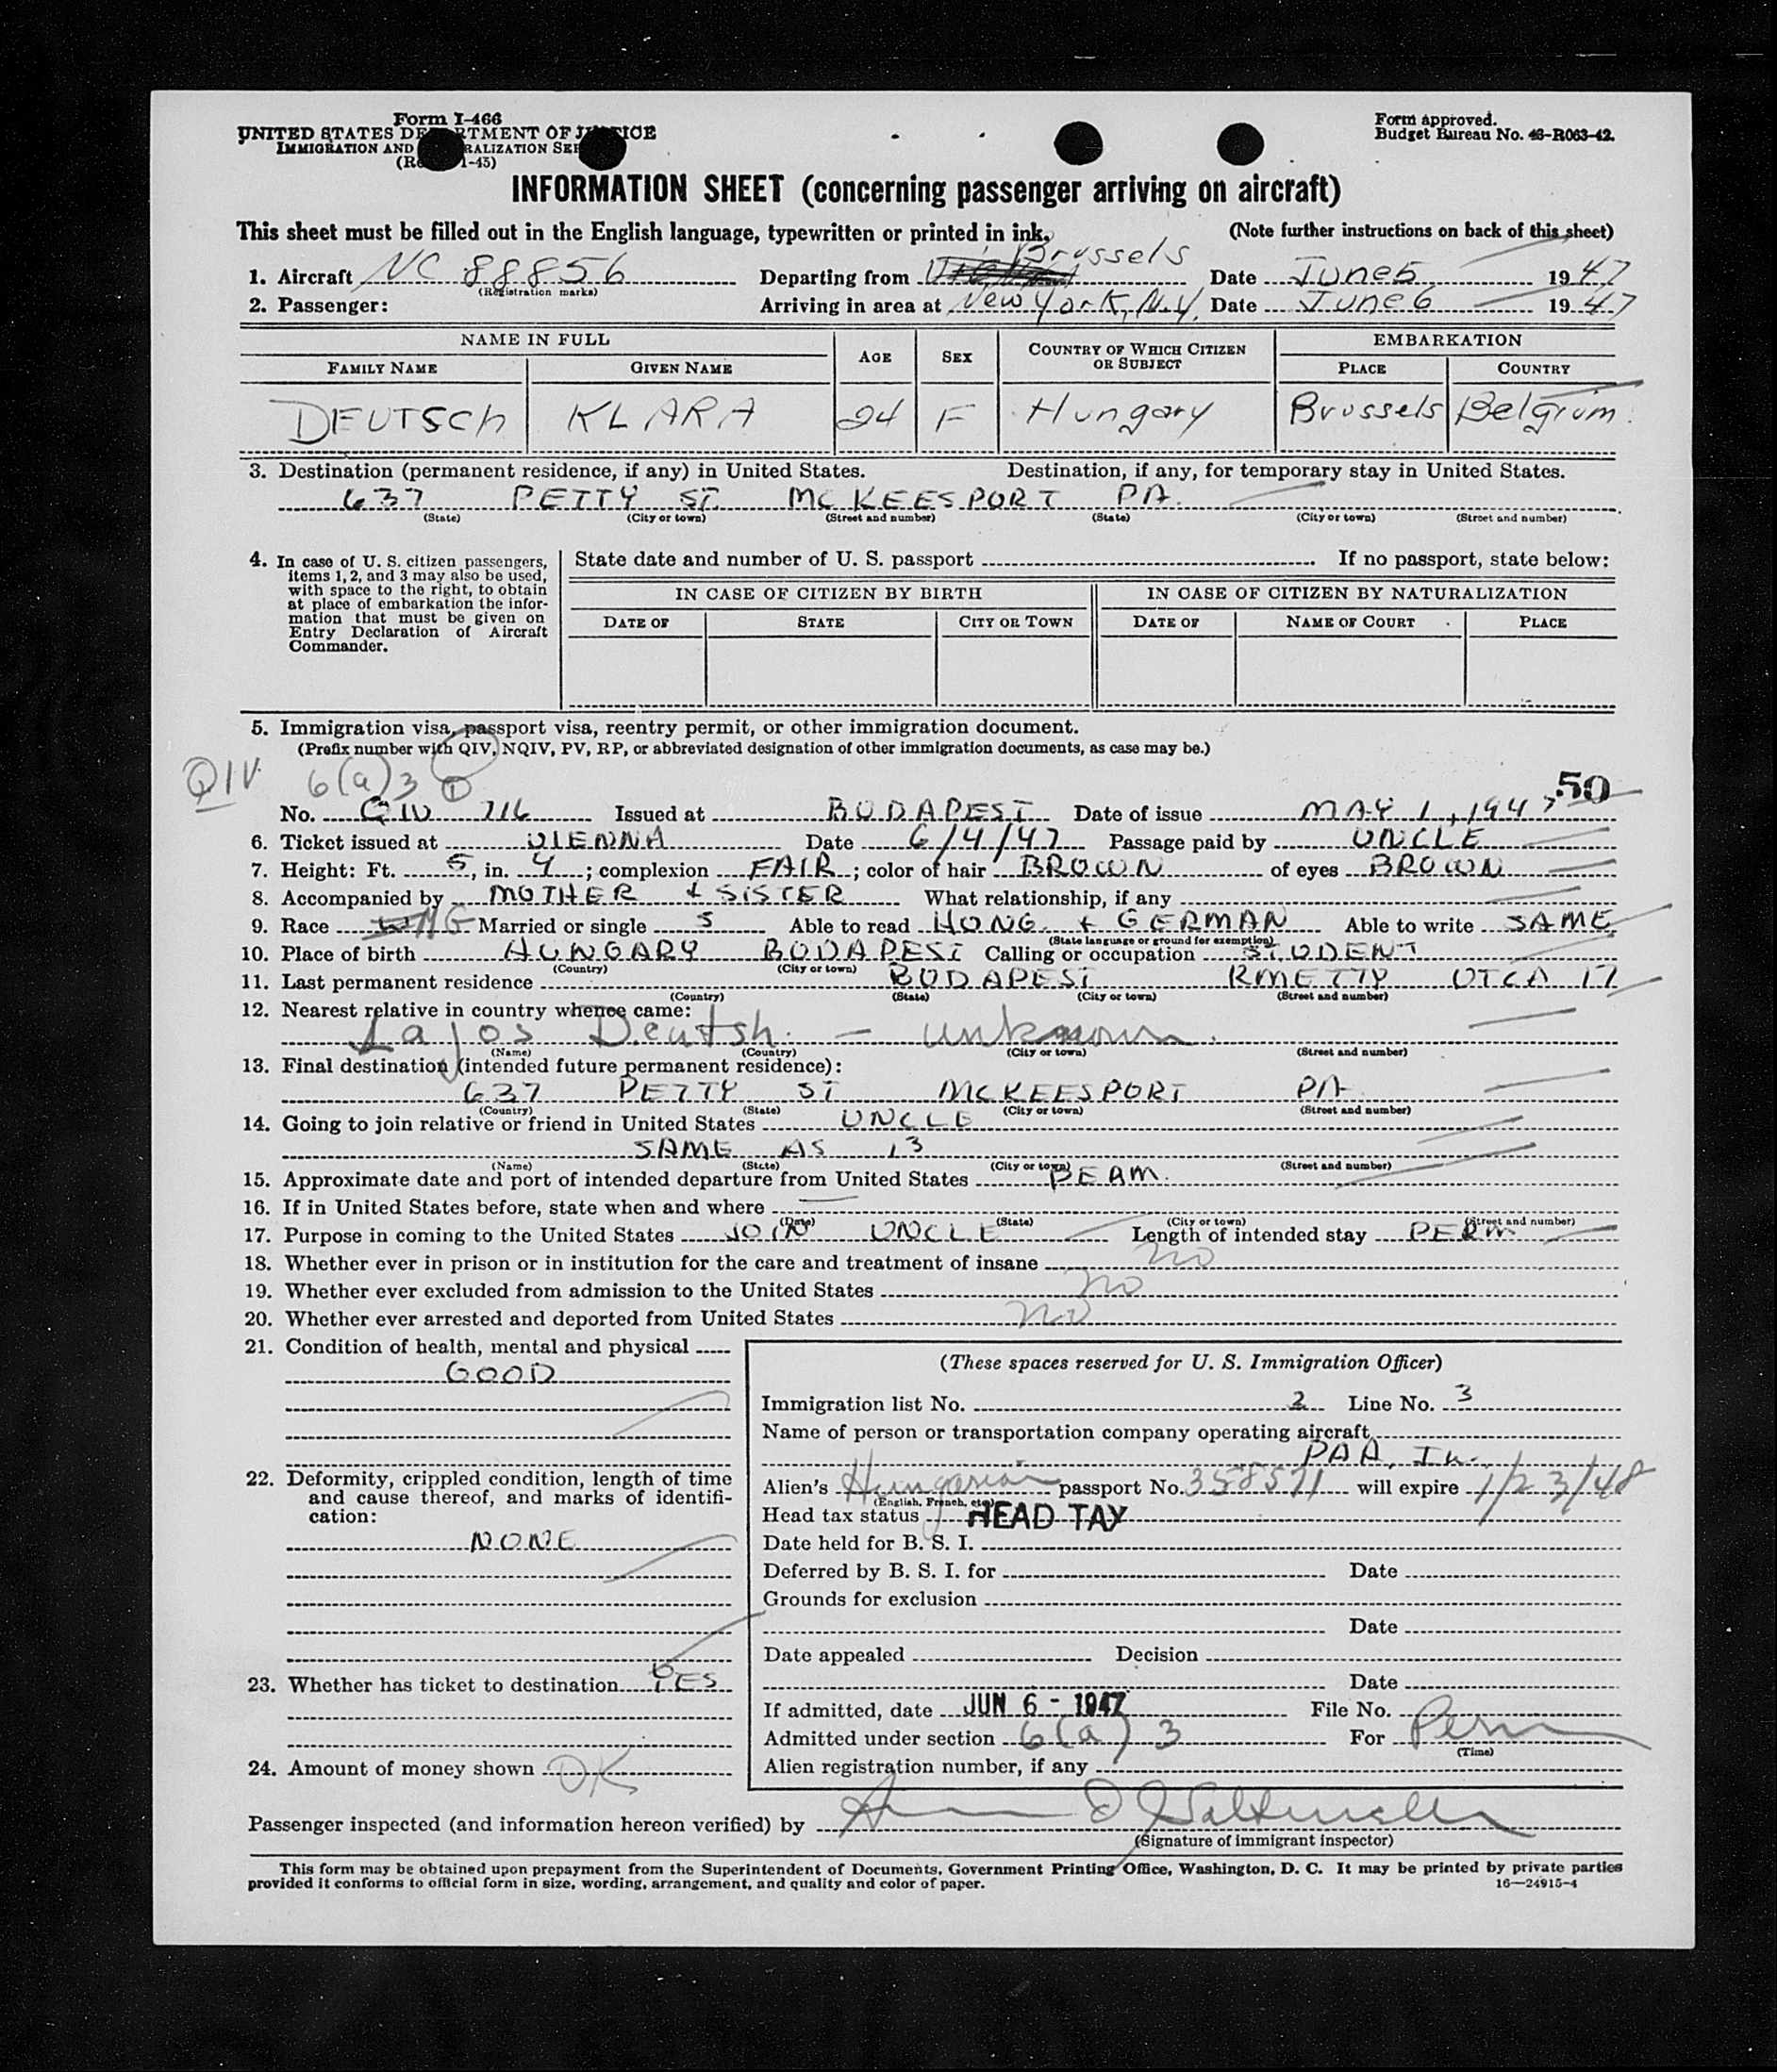 Form I-466
UNITED STATES DEPARTMENT OF JUSTICE
IMMIGRATION AND NATURALIZATION SERVICE
1-45)
Form approved.
Budget Bureau No. 43-R063-42.
INFORMATION SHEET (concerning passenger arriving on aircraft)
This sheet must be filled out in the English language, typewritten or printed in ink. (Note further instructions on back of this sheet)
Brussels
1. Aircraft NC 88856 Departing from Date June 5 1947
(Registration marks)
2. Passenger: Arriving in area at New York, N.Y. Date June 6 1947
NAME IN FULL AGE SEX COUNTRY OF WHICH CITIZEN OR SUBJECT EMBARKATION
FAMILY NAME GIVEN NAME PLACE COUNTRY
DEUTSCh KLARA 24 F Hungary Brussels Belgium
3. Destination (permanent residence, if any) in United States. Destination, if any, for temporary stay in United States.
637 PETTY ST. MCKEESPORT PA.
(State) (City or town) (Street and number) (State) (City or town) (Street and number)
4. In case of U. S. citizen passengers, items 1, 2, and 3 may also be used, with space to the right, to obtain at place of embarkation the information that must be given on Entry Declaration of Aircraft Commander.
State date and number of U. S. passport If no passport, state below:
IN CASE OF CITIZEN BY BIRTH IN CASE OF CITIZEN BY NATURALIZATION
DATE OF STATE CITY OR TOWN DATE OF NAME OF COURT PLACE
5. Immigration visa, passport visa, reentry permit, or other immigration document.
(Prefix number with QIV, NQIV, PV, RP, or abbreviated designation of other immigration documents, as case may be.)
QIV 6(a)3 50
No. QIV 716 Issued at BUDAPEST Date of issue MAY 1, 1947
6. Ticket issued at VIENNA Date 6/4/47 Passage paid by UNCLE
7. Height: Ft. 5, in. 4; complexion FAIR; color of hair BROWN of eyes BROWN
8. Accompanied by MOTHER & SISTER What relationship, if any
9. Race Married or single S Able to read HUNG. & GERMAN Able to write SAME
(State language or ground for exemption)
10. Place of birth HUNGARY BUDAPEST Calling or occupation STUDENT
(Country) (City or town)
11. Last permanent residence BUDAPEST RMETTY UTCA 17
(Country) (State) (City or town) (Street and number)
12. Nearest relative in country whence came:
Lajos Deutsh. - unknown.
(Name) (Country) (City or town) (Street and number)
13. Final destination (intended future permanent residence):
637 PETTY ST MCKEESPORT PA
(Country) (State) (City or town) (Street and number)
14. Going to join relative or friend in United States UNCLE
SAME AS 13
(Name) (State) (City or town) (Street and number)
15. Approximate date and port of intended departure from United States PEAM.
16. If in United States before, state when and where
(Date) (State) (City or town) (Street and number)
17. Purpose in coming to the United States JOIN UNCLE Length of intended stay PERM
18. Whether ever in prison or in institution for the care and treatment of insane no
19. Whether ever excluded from admission to the United States no
20. Whether ever arrested and deported from United States no
21. Condition of health, mental and physical
GOOD
22. Deformity, crippled condition, length of time and cause thereof, and marks of identification:
NONE
23. Whether has ticket to destination YES
24. Amount of money shown OK
(These spaces reserved for U. S. Immigration Officer)
Immigration list No. 2 Line No. 3
Name of person or transportation company operating aircraft
PAA, In.
Alien's Hungarian passport No. 358571 will expire 1/23/48
(English, French, etc.)
Head tax status HEAD TAX
Date held for B. S. I.
Deferred by B. S. I. for Date
Grounds for exclusion
Date
Date appealed Decision
Date
If admitted, date JUN 6 - 1947 File No.
Admitted under section 6(a)3 For Perm
(Time)
Alien registration number, if any
Passenger inspected (and information hereon verified) by
(Signature of immigrant inspector)
This form may be obtained upon prepayment from the Superintendent of Documents, Government Printing Office, Washington, D. C. It may be printed by private parties
provided it conforms to official form in size, wording, arrangement, and quality and color of paper.
16—24915-4